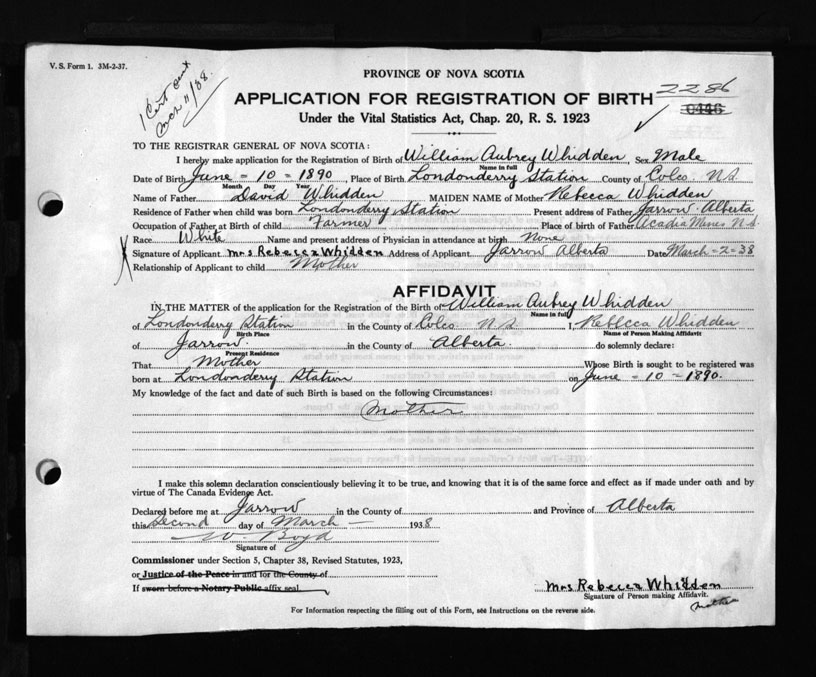 V. S. Form 1. 3M-2-37.
1 Cert sent
Mar 11/38.
PROVINCE OF NOVA SCOTIA
2286
APPLICATION FOR REGISTRATION OF BIRTH
0446
Under the Vital Statistics Act, Chap. 20, R. S. 1923
TO THE REGISTRAR GENERAL OF NOVA SCOTIA:
I hereby make application for the Registration of Birth of William Aubrey Whidden, Sex Male
Name in full
Date of Birth June - 10 - 1890, Place of Birth Londonderry Station County of Colco NS
Month Day Year
Name of Father David Whidden MAIDEN NAME of Mother Rebecca Whidden
Residence of Father when child was born Londonderry Station Present address of Father Jarrow Alberta
Occupation of Father at Birth of child Farmer Place of birth of Father Acadia Mines N.S.
Race White Name and present address of Physician in attendance at birth None
Signature of Applicant Mrs Rebecca Whidden Address of Applicant Jarrow Alberta Date March - 2 - 38
Relationship of Applicant to child Mother
AFFIDAVIT
IN THE MATTER of the application for the Registration of the Birth of William Aubrey Whidden
Name in full
of Londonderry Station in the County of Colco NS I, Rebecca Whidden
Birth Place Name of Person Making Affidavit
of Jarrow in the County of Alberta do solemnly declare:
Present Residence
That Mother Whose Birth is sought to be registered was
born at Londonderry Station on June - 10 - 1890.
My knowledge of the fact and date of such Birth is based on the following Circumstances:
Mother
I make this solemn declaration conscientiously believing it to be true, and knowing that it is of the same force and effect as if made under oath and by
virtue of The Canada Evidence Act.
Declared before me at Jarrow in the County of and Province of Alberta
this Second day of March - 1938
W. Boyd
Signature of
Commissioner under Section 5, Chapter 38, Revised Statutes, 1923,
or Justice of the Peace in and for the County of
If sworn before a Notary Public affix seal.
Mrs Rebecca Whidden
Signature of Person making Affidavit.
Mother
For Information respecting the filling out of this Form, see Instructions on the reverse side.